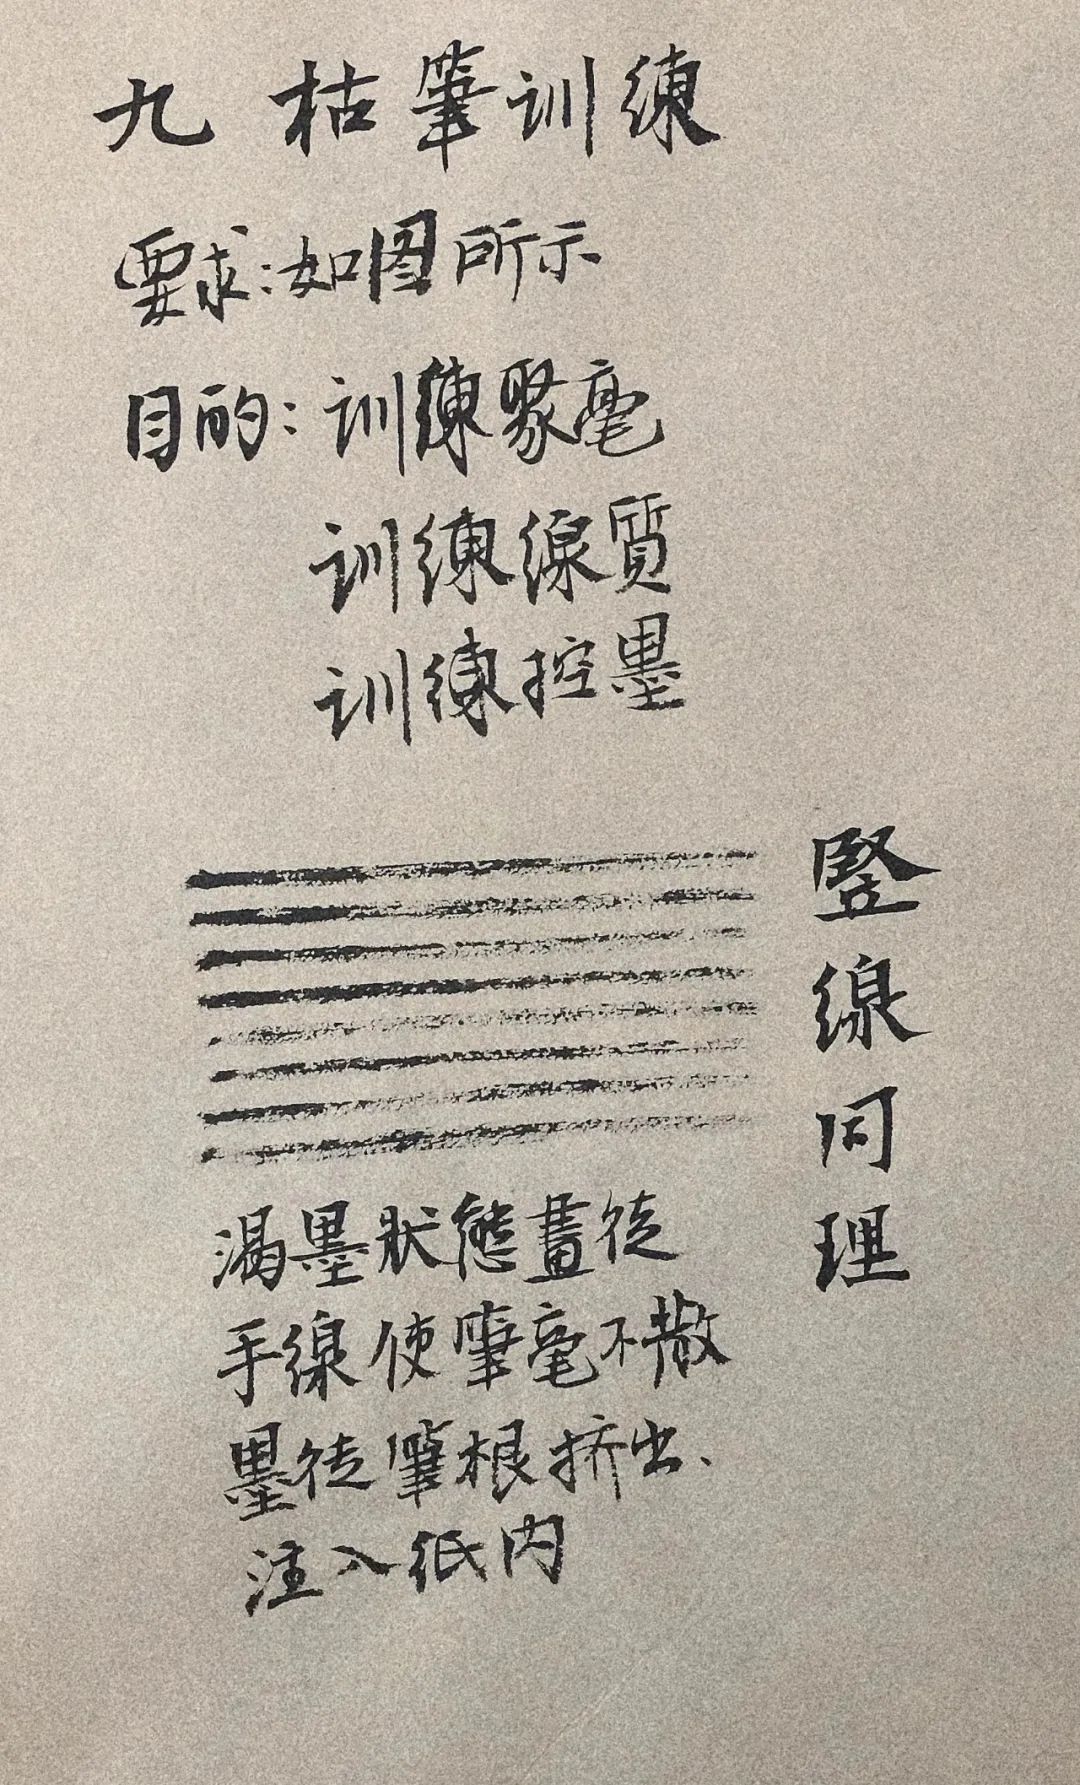 九 枯筆训練
要求:如图所示
目的:训練聚毫
训練線質
训練控墨
竪線同理
渴墨狀態畫徒
手線使筆毫不散
墨徒筆根挤出、
注入紙内